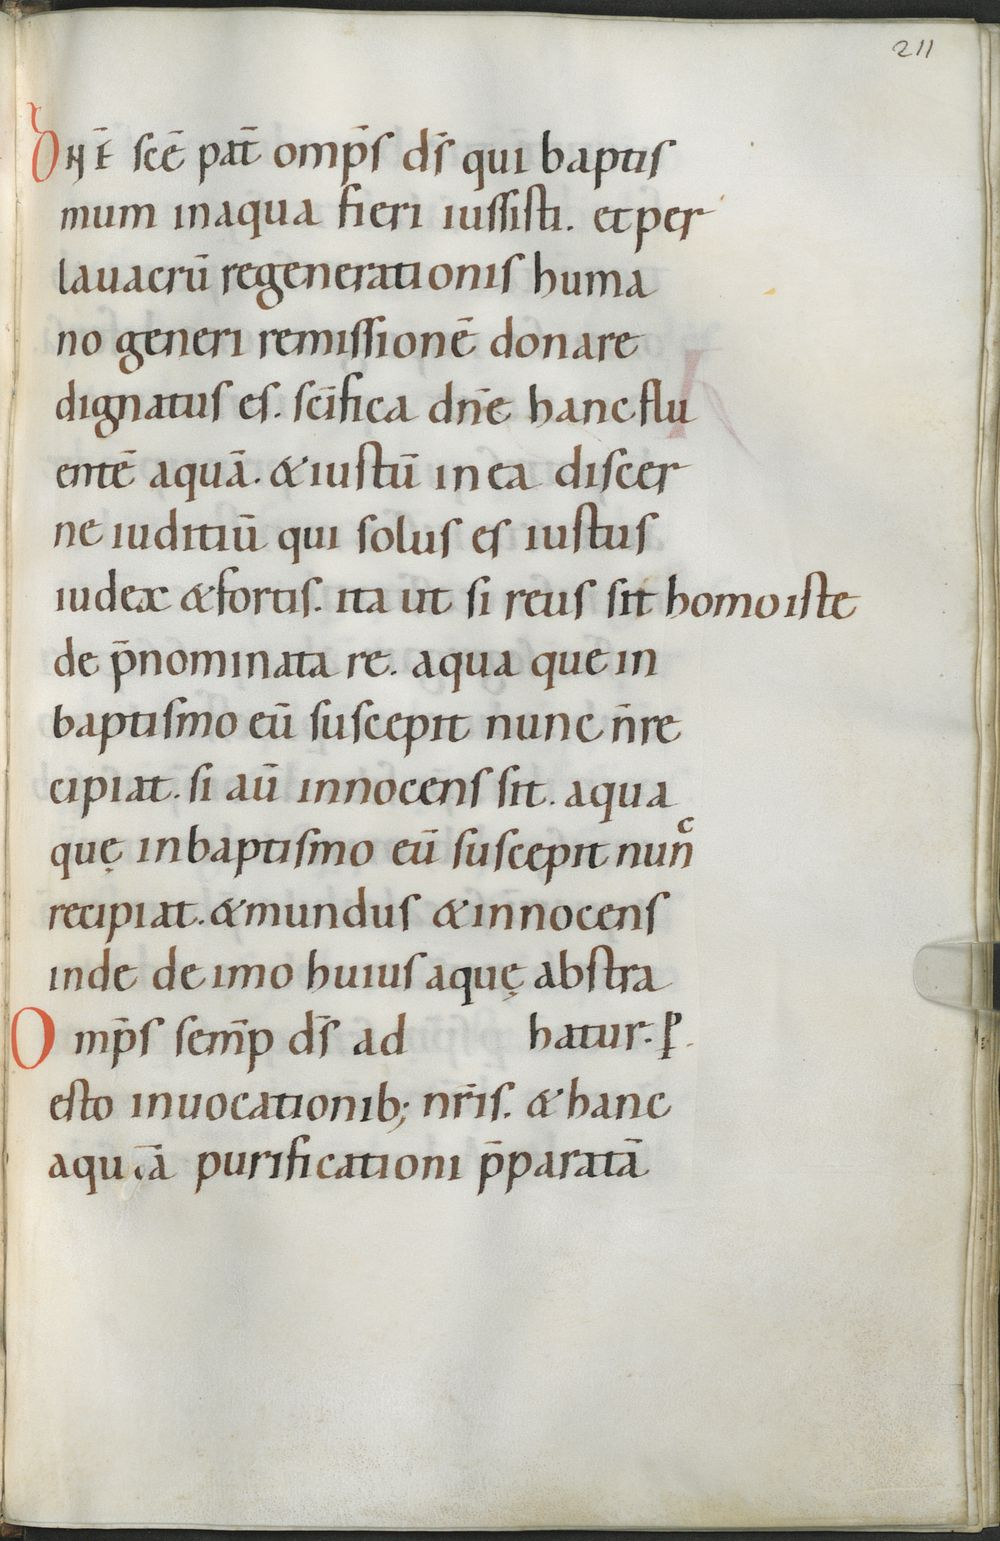 211
DNĒ scē pat̄ omp̄s d̄s qui baptis
mum inaqua fieri iussisti. et per
lauacrū regenerationis huma
no generi remissionē donare
dignatus es. sc̄ifica dn̄e hanc flu
entē aquā. & iustū in ea discer
ne iuditiū qui solus es iustus
iudex & fortis. ita ut si reus sit homo iste
de p̄nominata re. aqua que in
baptismo eū suscepit nunc n̄ re
cipiat. si aū innocens sit. aqua
quę inbaptismo eū suscepit nunc
recipiat. & mundus & innocens
inde de imo huius aquę abstra
hatur. P.
Omp̄s semp̄ d̄s ad
esto inuocationib; nr̄is. & hanc
aquā purificationi p̄paratā